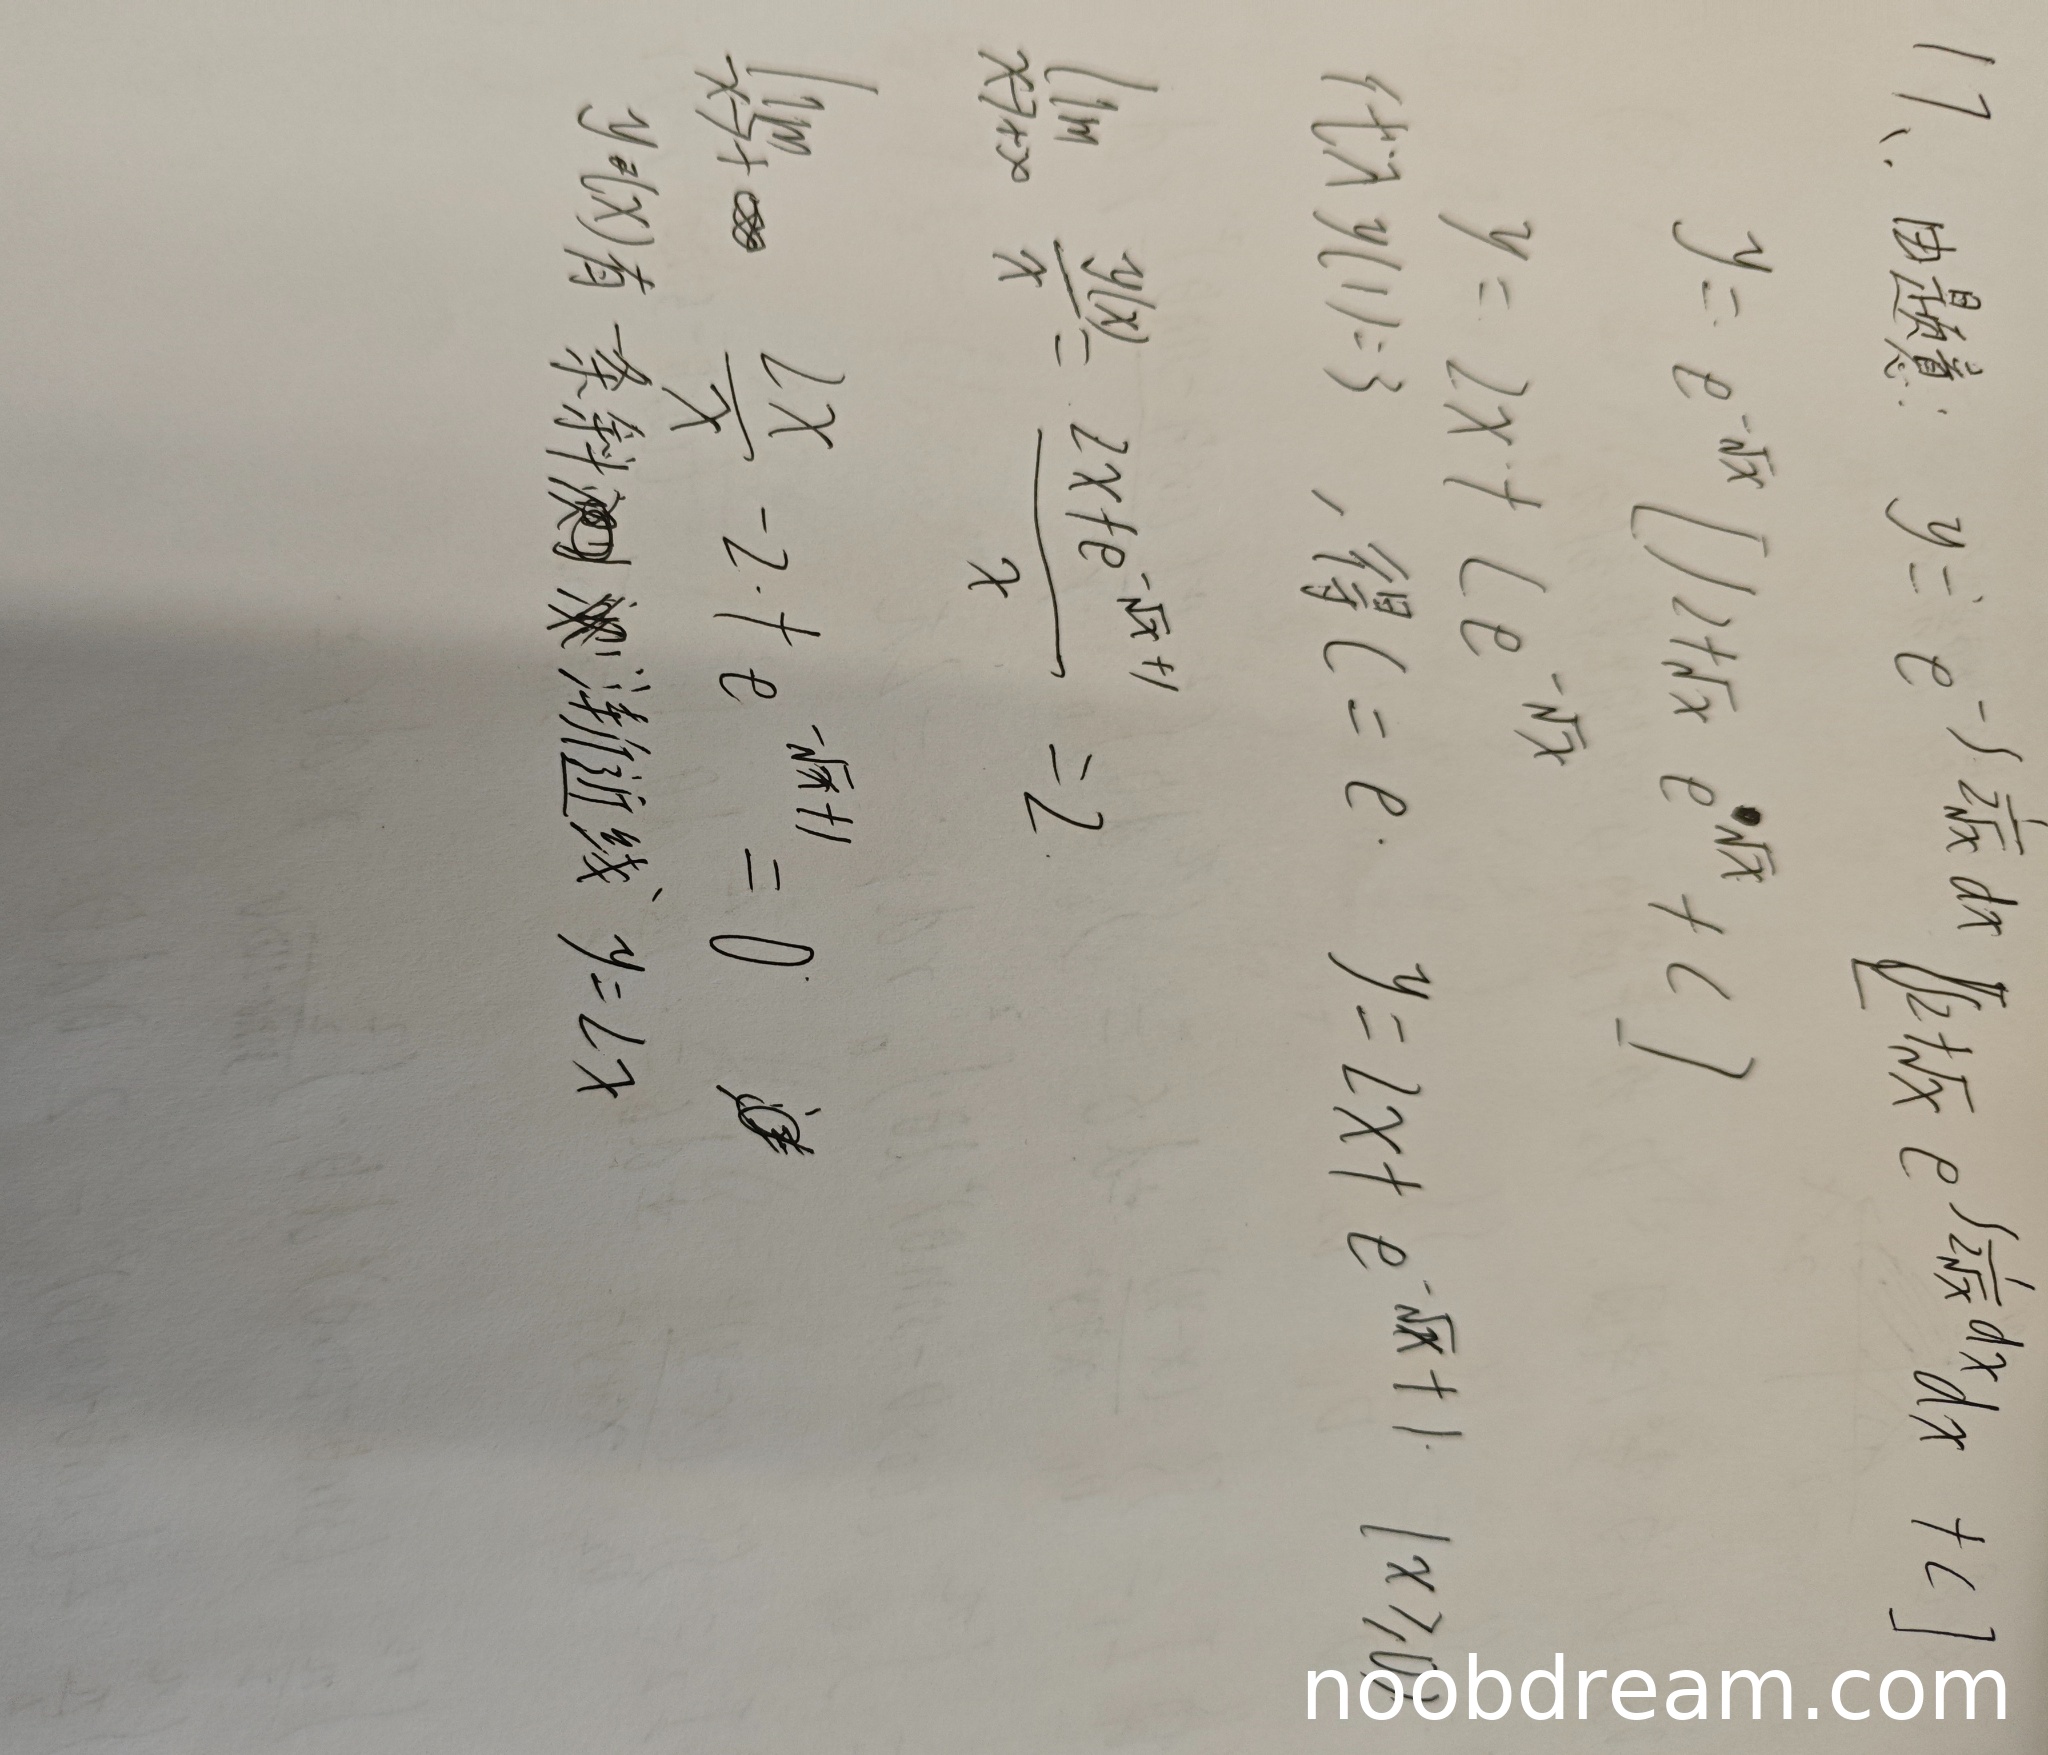 17、由题意: y = e^{-∫\frac{1}{2√x}dx} [∫2+√x e^{∫\frac{1}{2√x}dx}dx + C]
y = e^{-√x} [∫2+√x e^{√x} + C]
y = 2x + Ce^{-√x}
代入 y(1)=3 , 得C = e. y = 2x + e^{-√x+1} (x>0)
lim_{x→+∞} \frac{y(x)}{x} = \frac{2x+e^{-√x+1}}{x} = 2.
lim_{x→+∞} \frac{2x}{x} -2 + e^{-√x+1} = 0.
y=(x)有一条斜渐近线、y=2x
noobdream.com